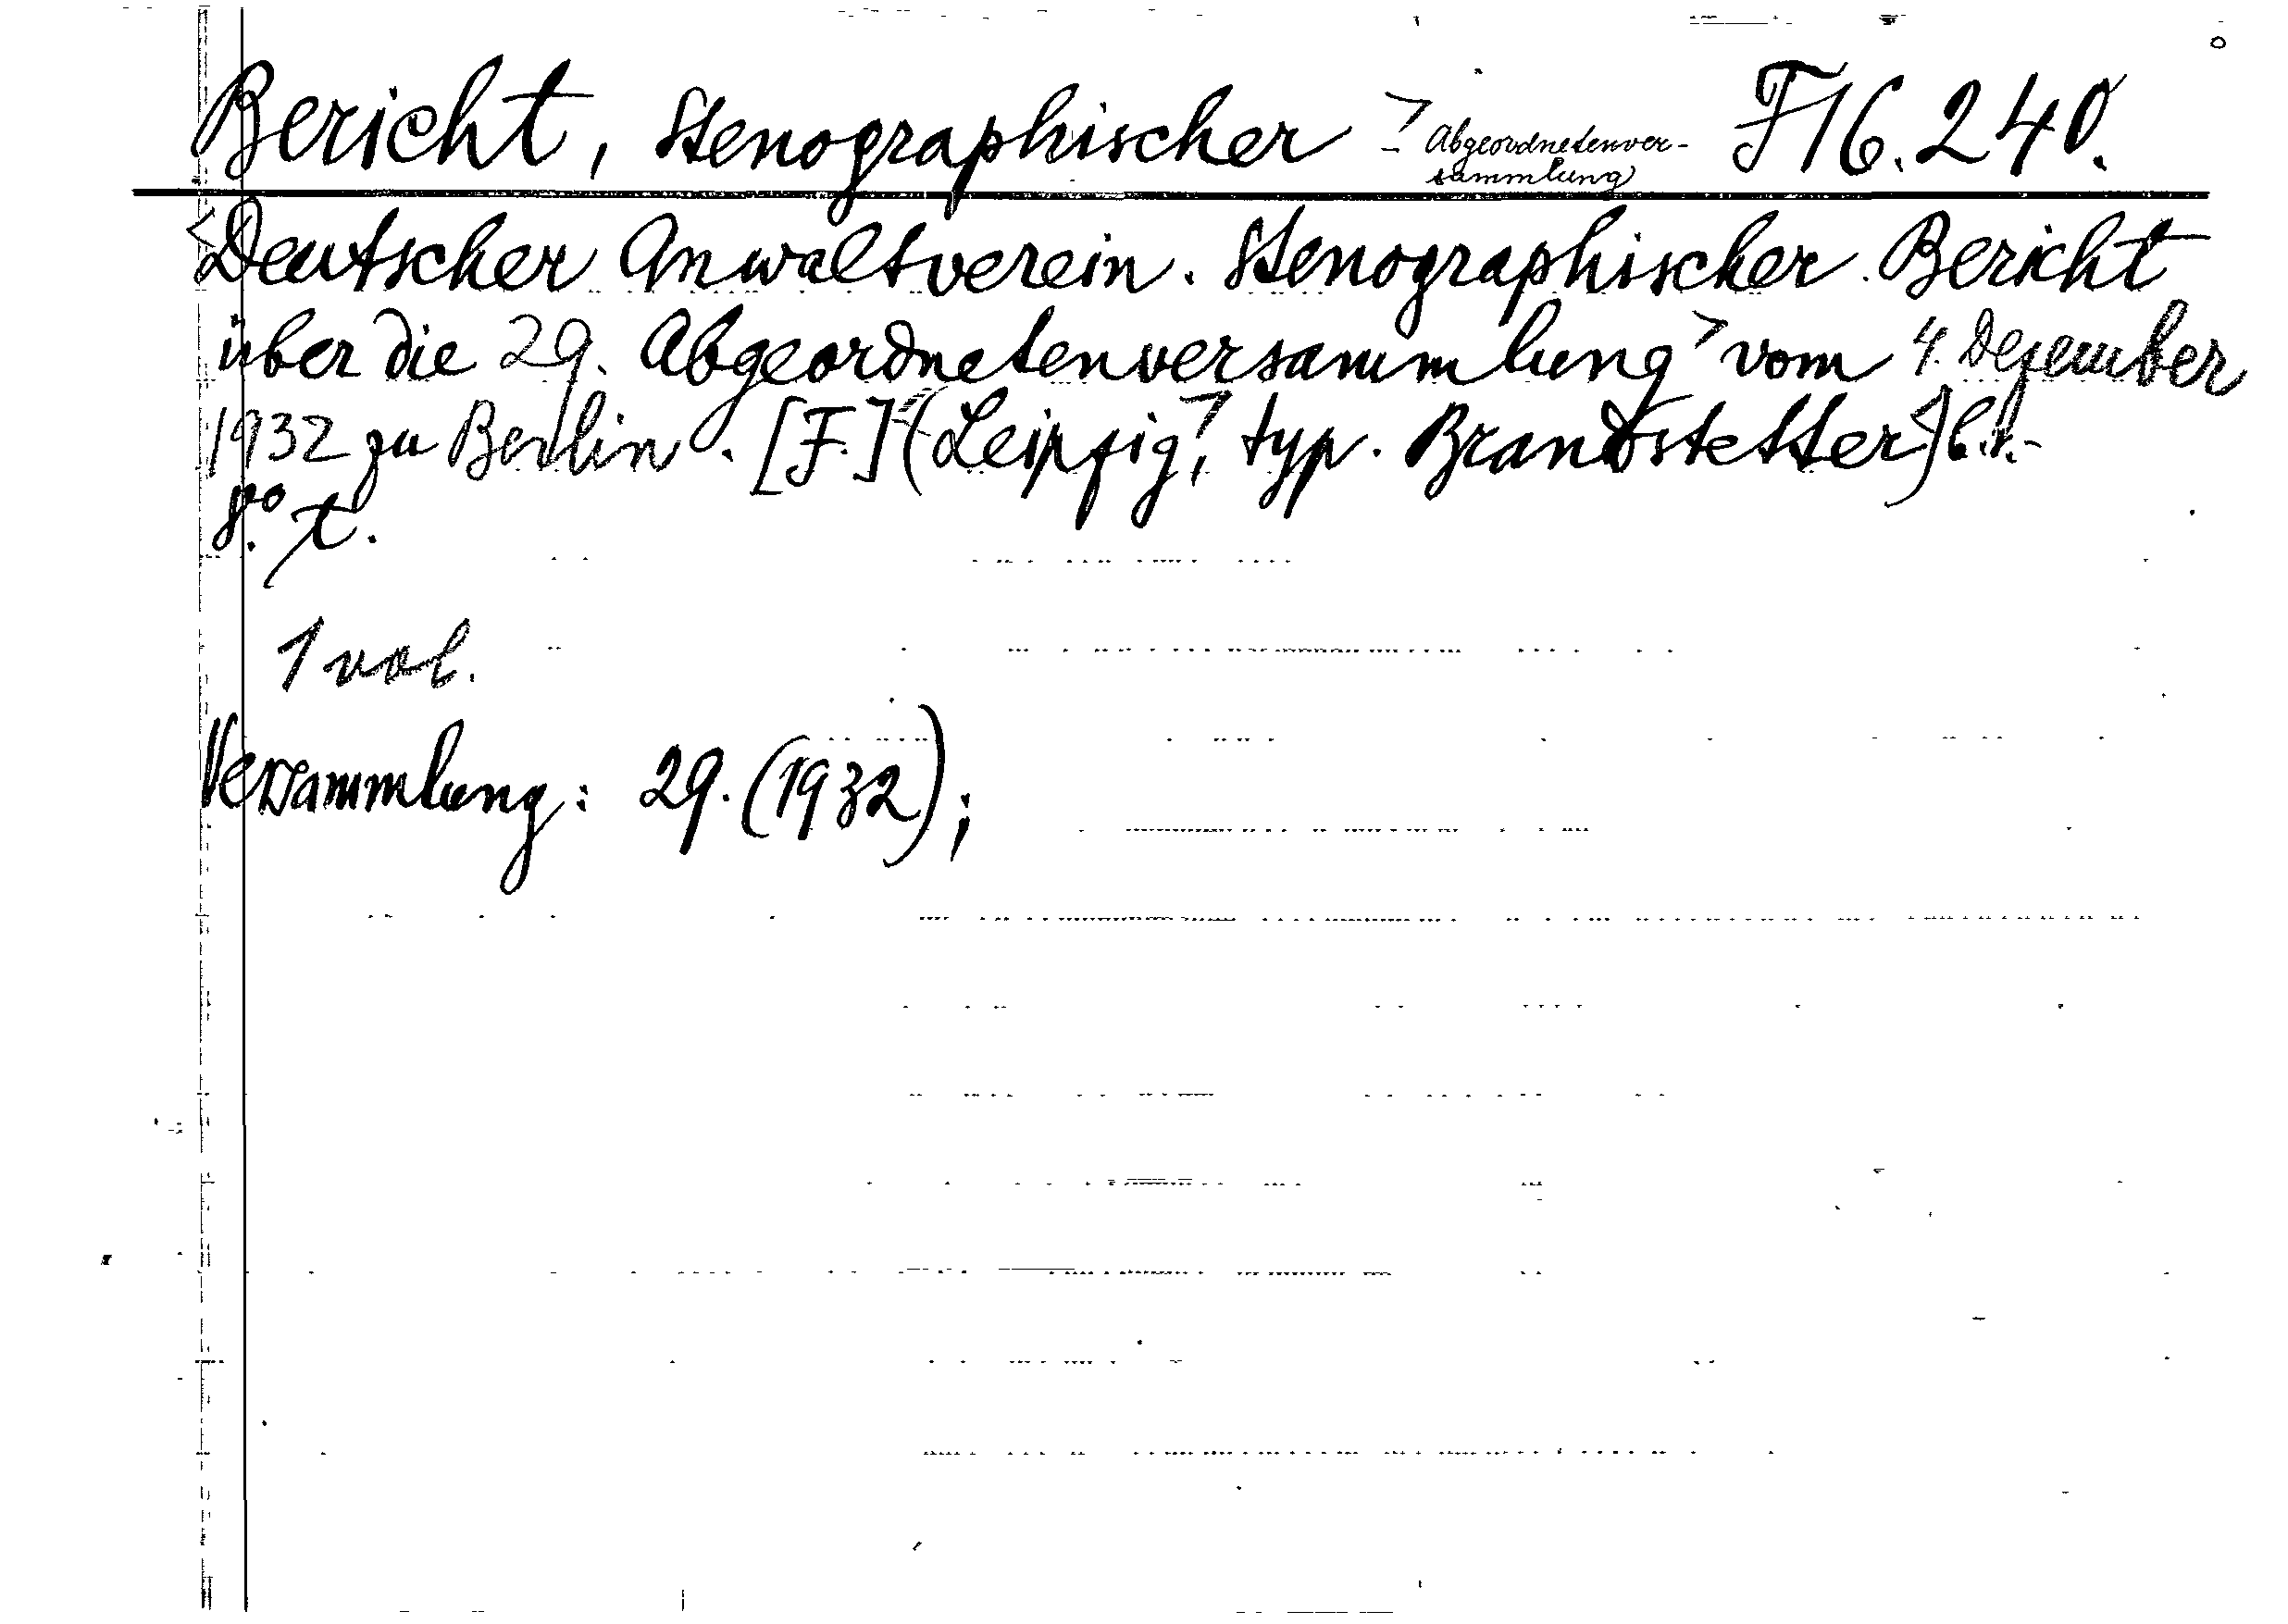 Bericht, Stenographischer > - Abgeordnetenver-
sammlung F16.240.
<Deutscher Anwaltverein. Stenographischer Bericht
über die 29. Abgeordnetenversammlung> vom 4. Dezember
1932 zu Berlin. [F.] (Leipzig, typ. Brandstetter)
8.° t.
1 vol.
Versammlung: 29. (1932);